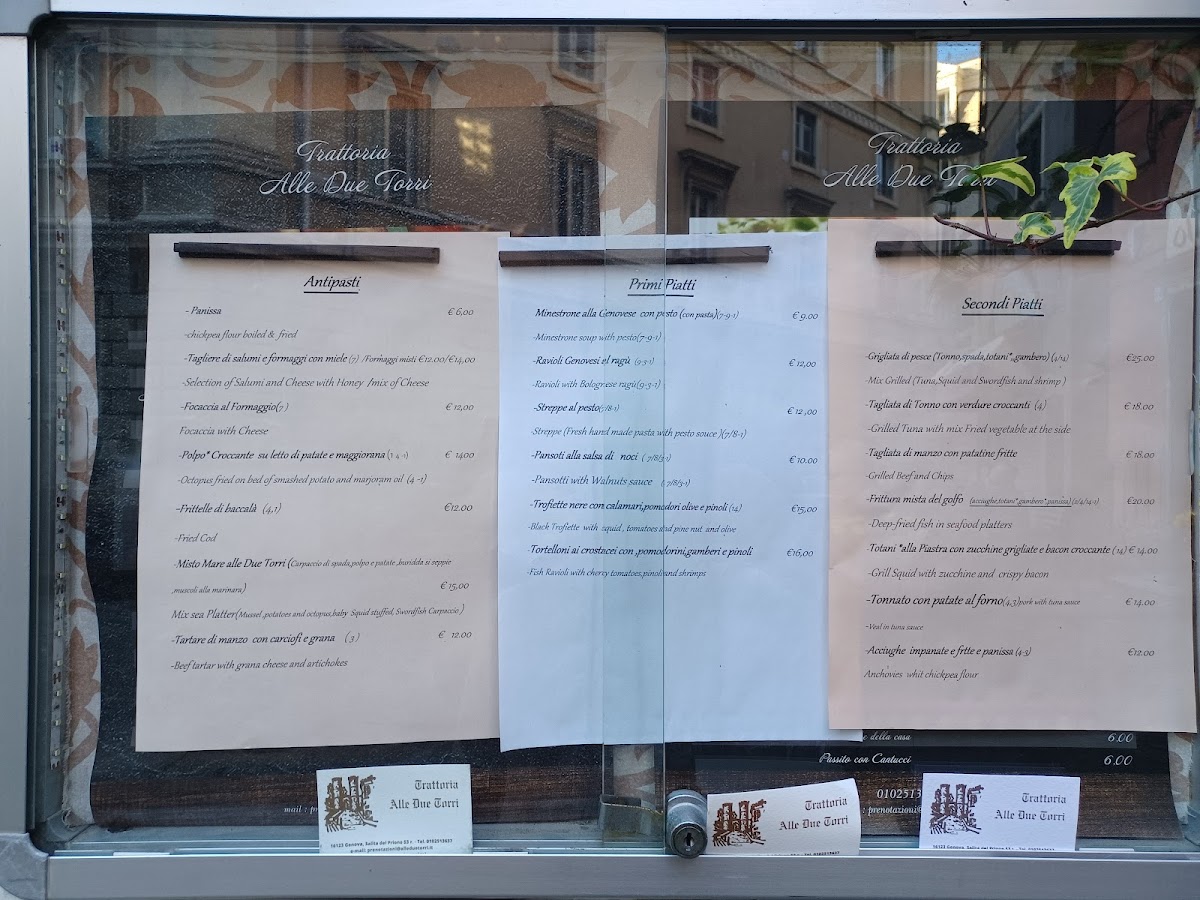 Trattoria
Alle Due Torri
Trattoria
Alle Due Torri
Antipasti
- Panissa € 6,00
-chickpea flour boiled & fried
-Tagliere di salumi e formaggi con miele (7) /Formaggi misti €12.00/€14,00
-Selection of Salumi and Cheese with Honey /mix of Cheese
-Focaccia al Formaggio(7) € 12,00
Focaccia with Cheese
-Polpo* Croccante su letto di patate e maggiorana (1 4 -1) € 1400
-Octopus fried on bed of smashed potato and marjoram oil (4 -1)
-Frittelle di baccalà (4,1) €12.00
-Fried Cod
-Misto Mare alle Due Torri (Carpaccio di spada,polpo e patate ,buridda si seppie
,muscoli alla marinara) € 15,00
Mix sea Platter(Mussel ,potatoes and octopus,baby Squid stuffed, Swordfish Carpaccio )
-Tartare di manzo con carciofi e grana (3) € 12.00
-Beef tartar with grana cheese and artichokes
Primi Piatti
Minestrone alla Genovese con pesto (con pasta)(7-9-1) € 9.00
-Minestrone soup with pesto(7-9-1)
-Ravioli Genovesi el ragù (9-3-1) € 12,00
-Ravioli with Bolognese ragù(9-3-1)
-Streppe al pesto(7/8-1) € 12 ,00
-Streppe (Fresh hand made pasta with pesto souce )(7/8-1)
-Pansoti alla salsa di noci ( 7/8/3-1) € 10.00
-Pansotti with Walnuts sauce ( 7/8/3-1)
-Trofiette nere con calamari,pomodori olive e pinoli (14) €15,00
-Black Trofiette with squid , tomatoes and pine nut and olive
-Tortelloni ai crostacei con ,pomodorini,gamberi e pinoli €16,00
-Fish Ravioli with cherry tomatoes,pinoli and shrimps
Secondi Piatti
-Grigliata di pesce (Tonno,spada,totani*,,gambero) (4/14) €25.00
-Mix Grilled (Tuna,Squid and Swordfish and shrimp )
-Tagliata di Tonno con verdure croccanti (4) € 18.00
-Grilled Tuna with mix Fried vegetable at the side
-Tagliata di manzo con patatine fritte € 18.00
-Grilled Beef and Chips
-Frittura mista del golfo (acciughe,totani*,gambero*,panissa) (2/4/14-1) €20.00
-Deep-fried fish in seafood platters
-Totani *alla Piastra con zucchine grigliate e bacon croccante (14) € 14.00
-Grill Squid with zucchine and crispy bacon
-Tonnato con patate al forno(4,3)pork with tuna sauce € 14.00
-Veal in tuna sauce
-Acciughe impanate e frtte e panissa (4-3) €12.00
Anchovies whit chickpea flour
e della casa 6.00
Passito con Cantucci 6.00
mail : p
0102513
: prenotazioni@
Trattoria
Alle Due Torri
16123 Genova, Salita del Prione 53 r. - Tel. 0102513637
e-mail: prenotazioni@alleduetorri.it
Trattoria
Alle Due Torri
Trattoria
Alle Due Torri
16123 Genova, Salita del Prione 53 r. - Tel. 0102513637